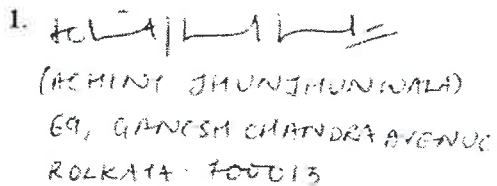 1.
(ACHINT JHUNJHUNWALA)
69, GANESH CHANDRA AVENUE
KOLKATA 700013